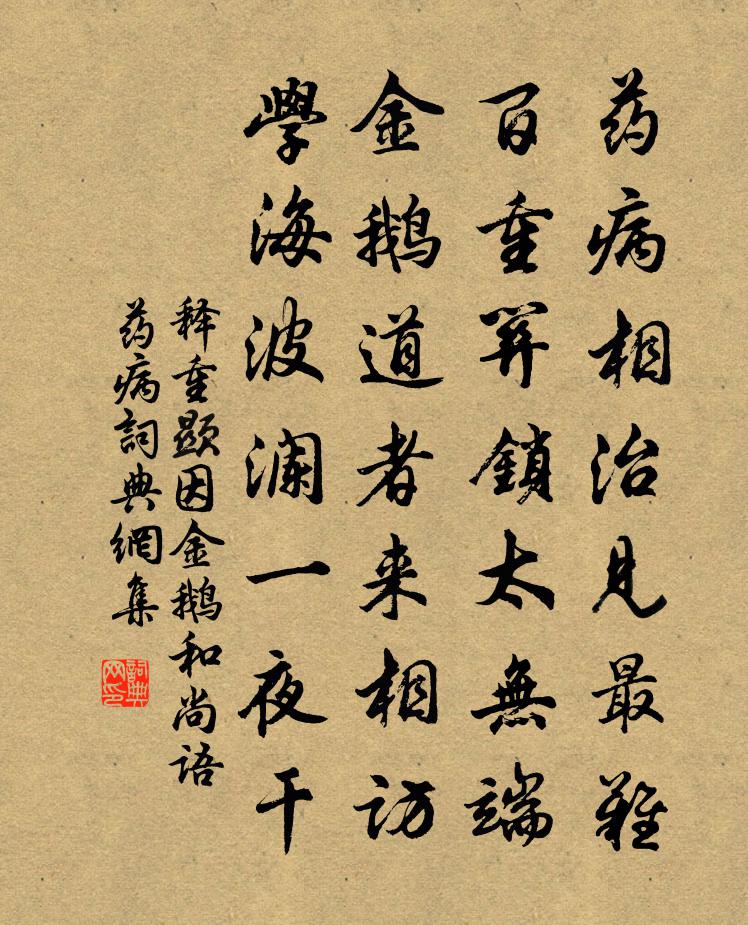 药病相治见最难
百重关鎖太無端
金鹅道者来相访
學海波澜一夜干
释重顯因金鹅和尚语
药病詞典網集
詞典
网印